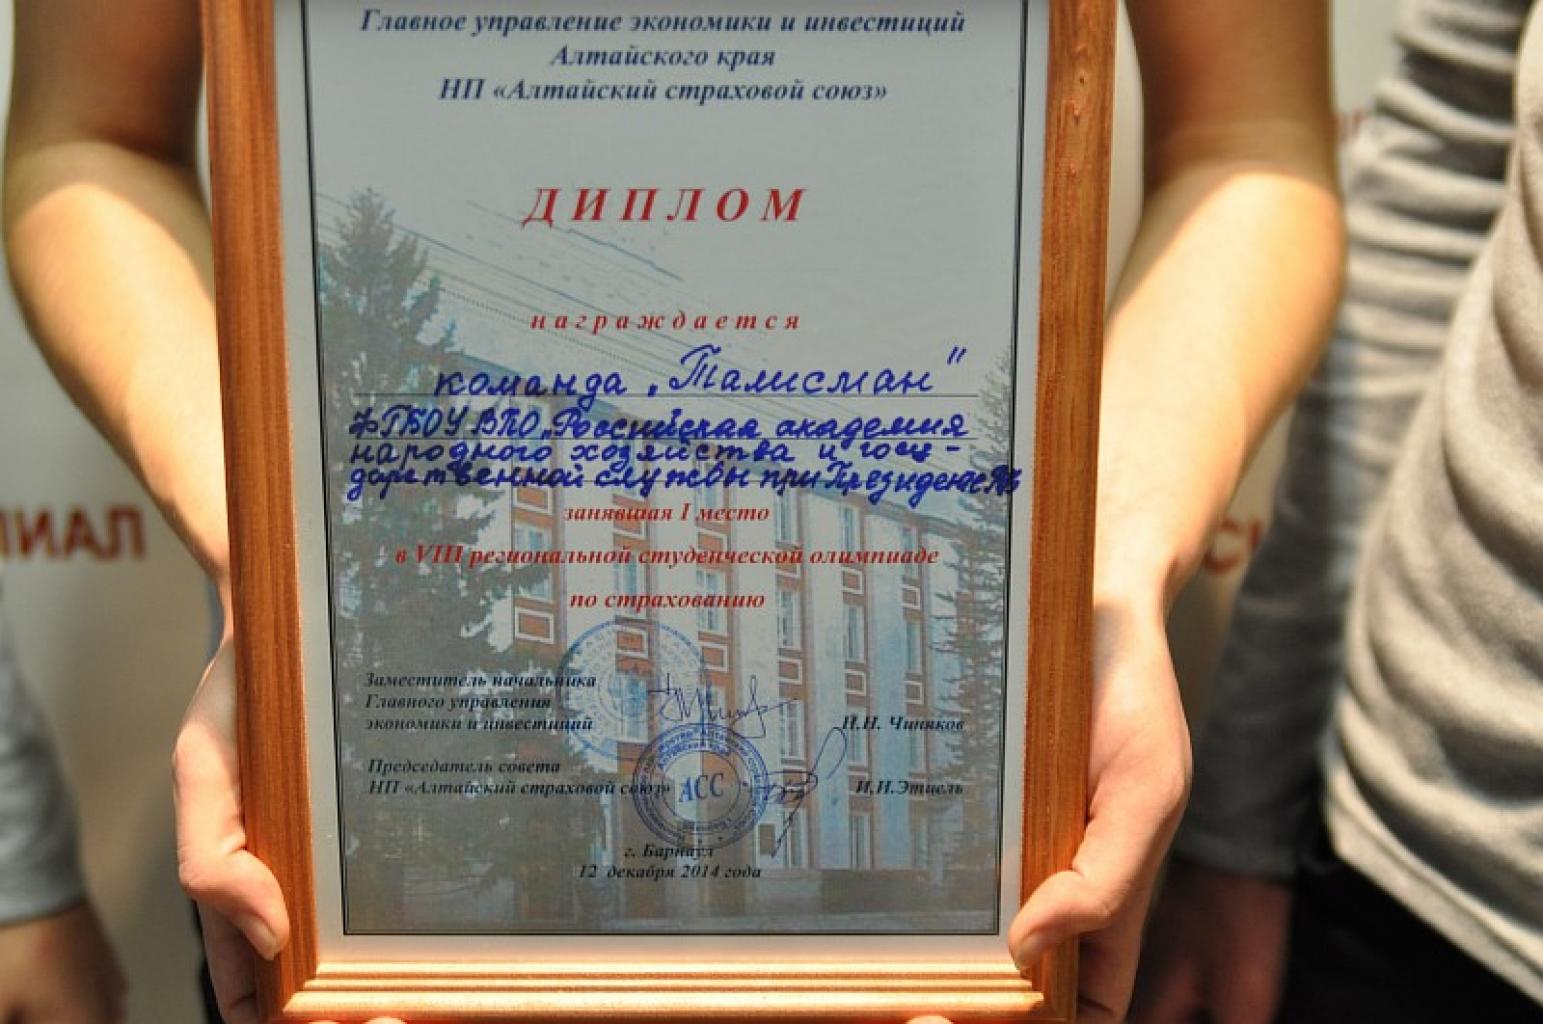 Главное управление экономики и инвестиций
Алтайского края
НП «Алтайский страховой союз»
ДИПЛОМ
награждается
команда „Талисман"
ФГБОУ ВПО „Российская академия
народного хозяйства и госу-
дарственной службы при Президенте РФ
занявшая I место
в VIII региональной студенческой олимпиаде
по страхованию
Заместитель начальника
Главного управления
экономики и инвестиций
И.Н. Чиняков
Председатель совета
НП «Алтайский страховой союз»
И.И.Этцель
АСС
г. Барнаул
12 декабря 2014 года
ИАЛ